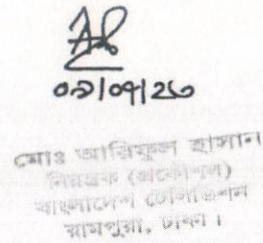 ০৯/০৭/২৩
মোঃ আরিফুল হাসান
নিয়ন্ত্রক (প্রকৌশল)
বাংলাদেশ টেলিভিশন
রামপুরা, ঢাকা।